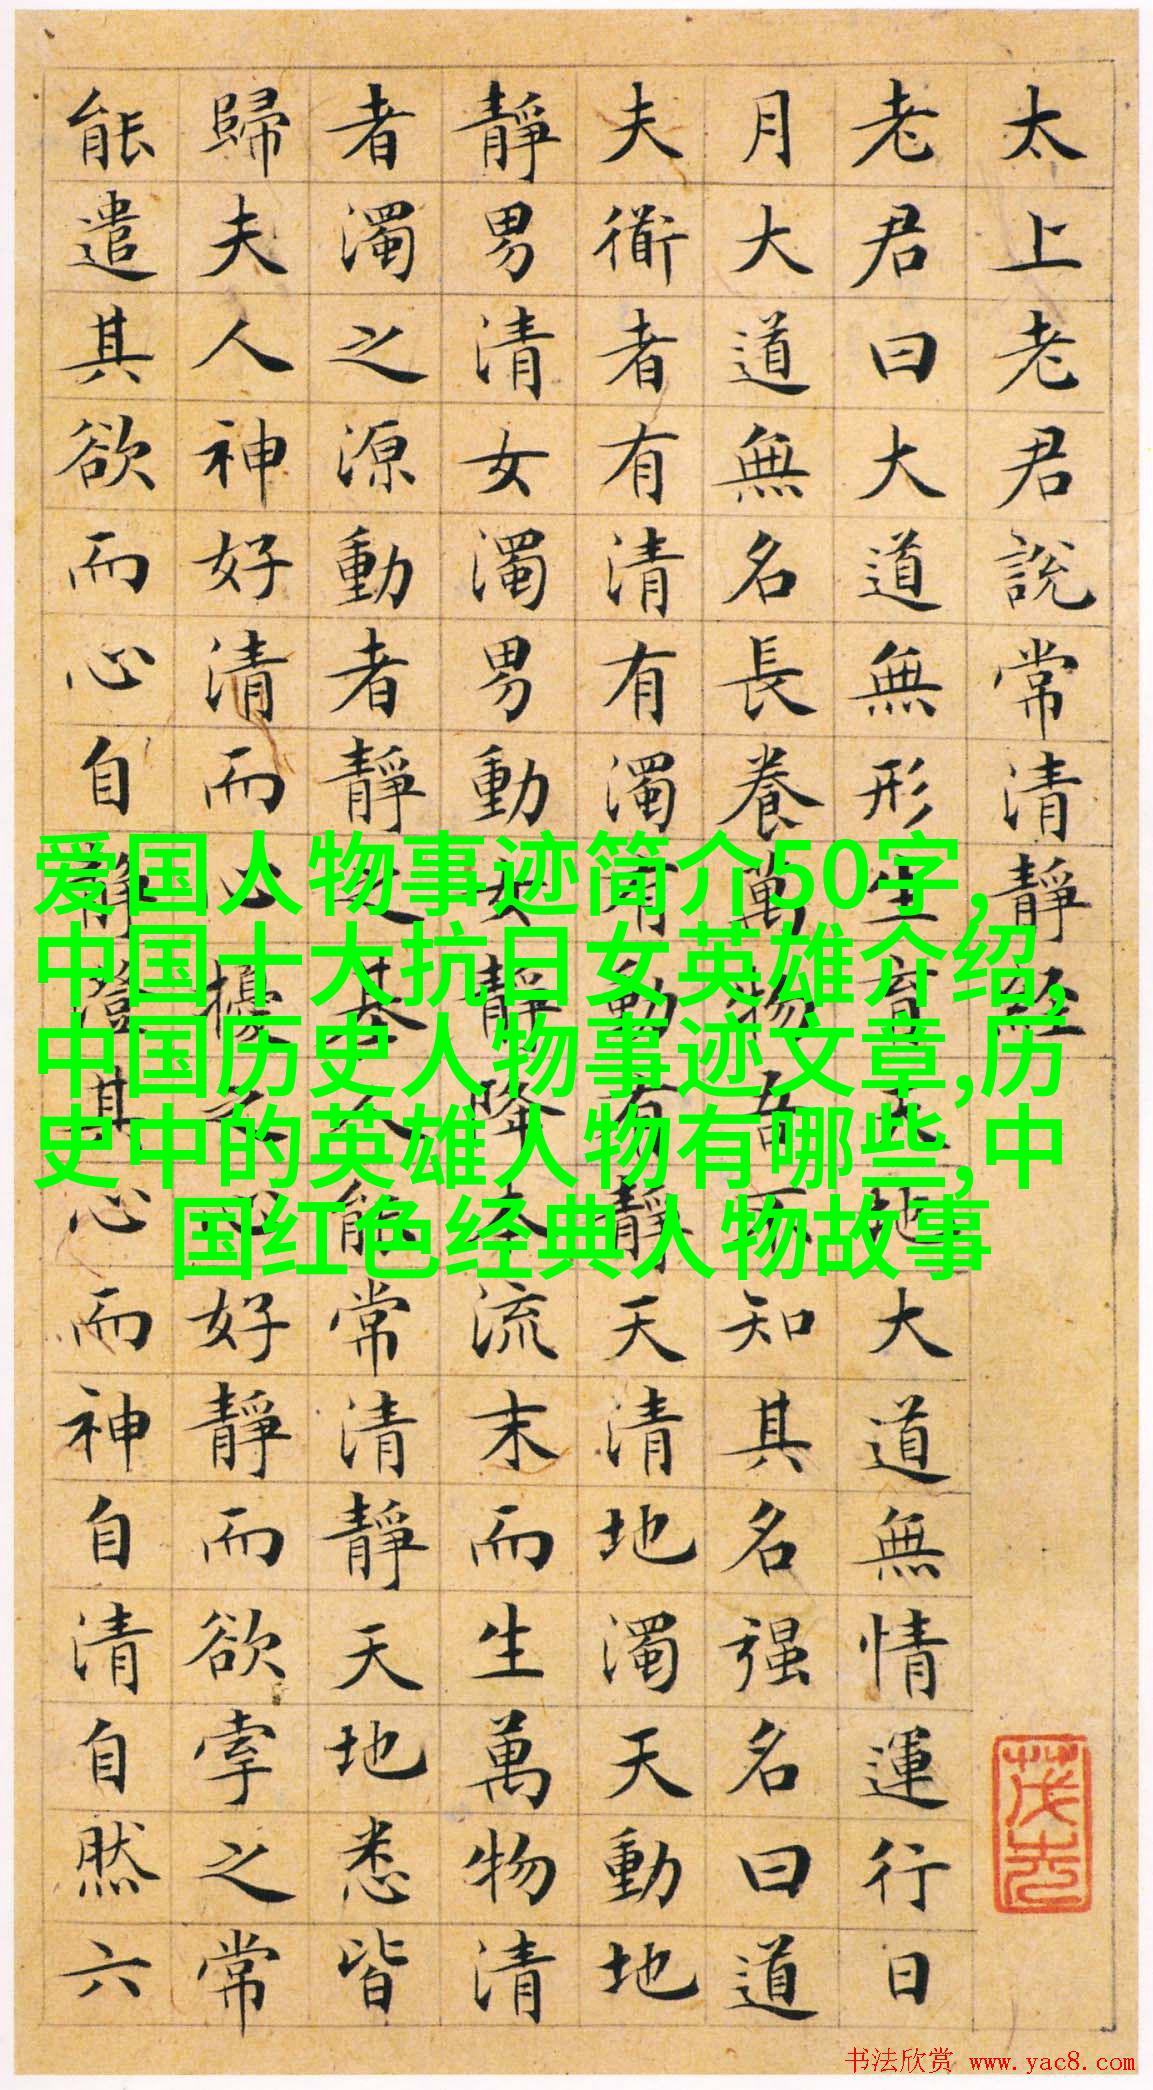 太上老君說常清靜經
老君曰大道無形生育天地大道無情運行日
月大道無名長養萬物吾不知其名强名曰道
夫衜者有清有濁有動有靜天清地濁天動地
靜男清女濁男動女靜降本流末而生萬物清
者濁之源動者靜之基人能常清靜天地悉皆
歸夫人神好清而心擾之心好靜而欲牽之常
能遣其欲而心自靜澄其心而神自清自然六
爱国人物事迹简介50字,
中国十大抗日女英雄介绍,
中国历史人物事迹文章,历
史中的英雄人物有哪些,中
国红色经典人物故事
书法欣赏 www.yac8.com